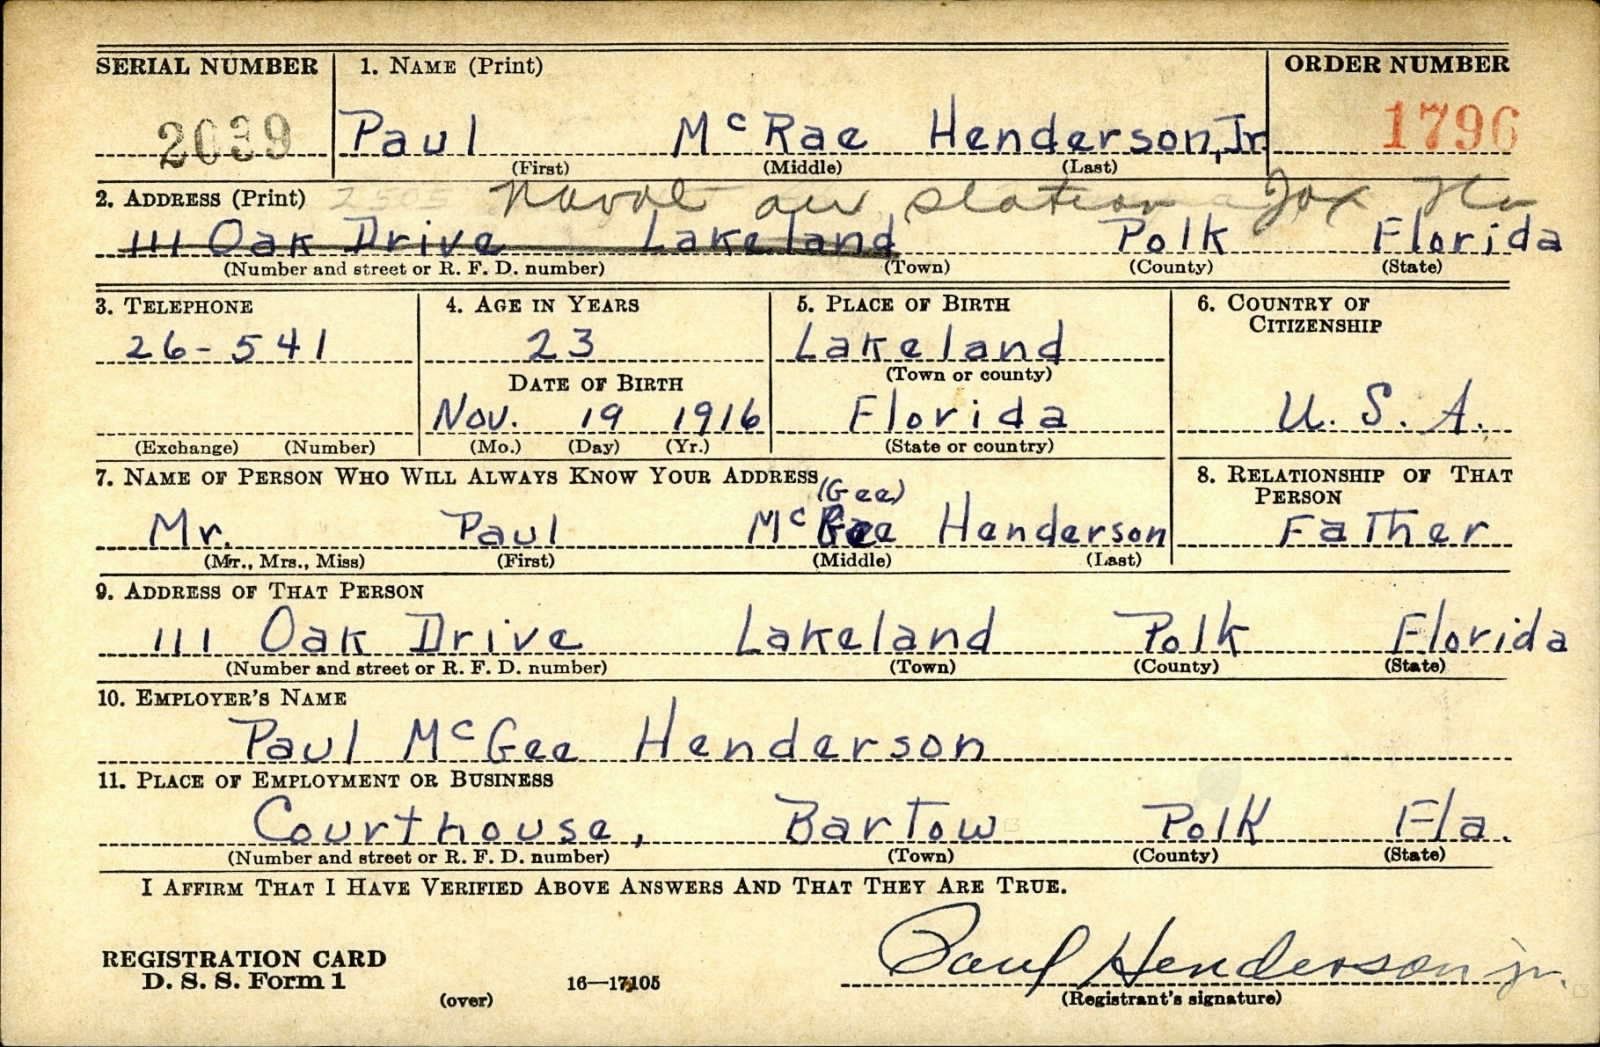 SERIAL NUMBER 1. NAME (Print) ORDER NUMBER
2039 Paul McRae Henderson, Jr. 1796
(First) (Middle) (Last)
2. ADDRESS (Print) Naval air station Jax Fla
111 Oak Drive Lakeland Polk Florida
(Number and street or R. F. D. number) (Town) (County) (State)
3. TELEPHONE 4. AGE IN YEARS 5. PLACE OF BIRTH 6. COUNTRY OF
CITIZENSHIP
26-541 23 Lakeland
(Town or county)
DATE OF BIRTH
Nov. 19 1916 Florida U. S. A.
(Exchange) (Number) (Mo.) (Day) (Yr.) (State or country)
7. NAME OF PERSON WHO WILL ALWAYS KNOW YOUR ADDRESS 8. RELATIONSHIP OF THAT
PERSON
(Gee)
Mr. Paul Mc Henderson Father
(Mr., Mrs., Miss) (First) (Middle) (Last)
9. ADDRESS OF THAT PERSON
111 Oak Drive Lakeland Polk Florida
(Number and street or R. F. D. number) (Town) (County) (State)
10. EMPLOYER'S NAME
Paul McGee Henderson
11. PLACE OF EMPLOYMENT OR BUSINESS
Courthouse, Bartow Polk Fla.
(Number and street or R. F. D. number) (Town) (County) (State)
I AFFIRM THAT I HAVE VERIFIED ABOVE ANSWERS AND THAT THEY ARE TRUE.
Paul Henderson jr.
REGISTRATION CARD
D. S. S. Form 1
(over) 16—17105 (Registrant's signature)